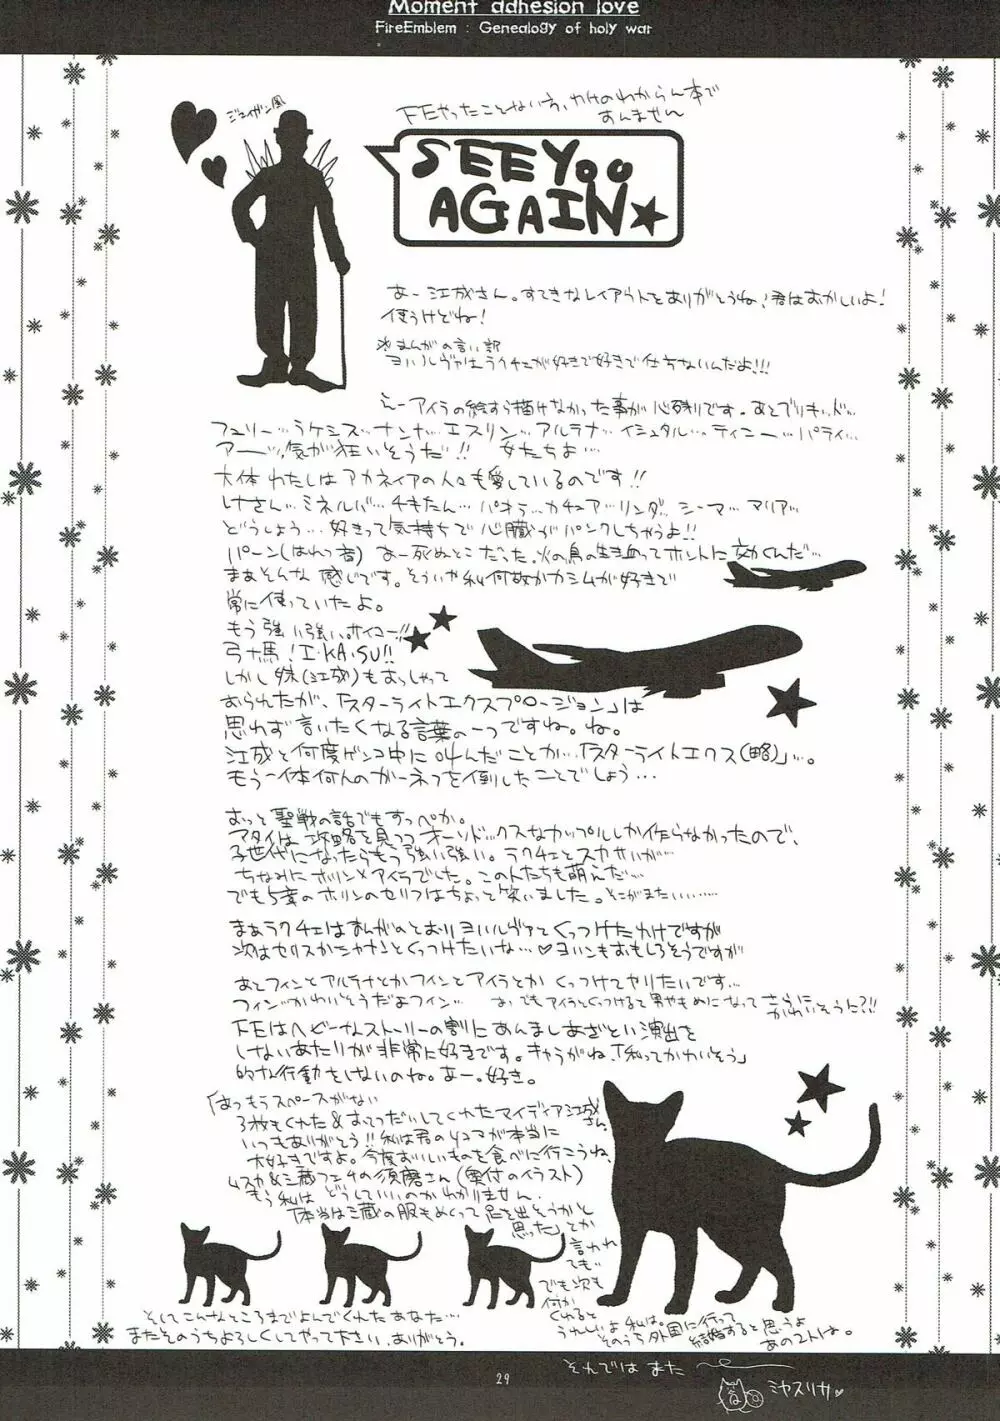 Moment adhesion love
FireEmblem : Genealogy of holy war
ジェイガン風
FEやったことない方、わけのわからん本で
すんません
SEE YOU
AGAIN★
あー江成さん。すてきなレイアウトをありがとうね!君はおかしいよ!
使うけどね!
※まんがの言い訳
ヨハルヴァはラクチェが好きで好きで仕方ないんだよ!!!
えーアイラの絵すら描けなかった事が心残りです。あとブリギッド…
フュリー…ラケシス…ナンナ…エスリン…アルテナ…イシュタル…ティニー…パティ…
アーー…気が狂いそうだ!! 女たちよ…
大体わたしはアカネイアの人々も愛しているのです!!
しーさん…ミネルバ…チキたん…パオラ…カチュア…リンダ…シーマ…マリア…
どうしよう…好きって気持ちで心臓がパンクしちゃうよ!!
パーン(はれつ音) あー死ぬとこだった。火の鳥の生き血ってホントに効くんだ…
まぁそんな感じです。そういや私何故かカシムが好きで
常に使っていたよ。
もう強い強い。ホイコー!!
弓+馬!I・KA・SU!!
しかし妹(江成)もおっしゃって
おられたが、「スターライトエクスプロージョン」は
思わず言いたくなる言葉の一つですね。ね。
江成と何度ゲンコ中に叫んだことか…「スターライトエクス(略)」…。
もう一体何人のガーネフを倒したことでしょう…
おっと聖戦の話でもすっぺか。
アタイは攻略を見つつオーソドックスなカップルしか作らなかったので、
子世代になったらもう強い強い。ラクチェとスカサハが…
ちなみにホリン×アイラでした。この人たちも萌えだ…
でも5章のホリンのセリフはちょっと笑いました。そこがまたいい……
まぁラクチェはまんがのとおりヨハルヴァとくっつけたわけですが
次はセリスかシャナンとくっつけたいな…♡ヨハンもおもしろそうですが
あとフィンとアルテナとかフィンとアイラとかくっつけてヤリたいです…
フィン…かわいそうだよフィン… あ、でもアイラとくっつけると男やもめになってさらにかわいそうに?!!
FEはヘビーなストーリーの割にあんましあざとい演出を
しないあたりが非常に好きです。キャラがね、「私ってかわいそう」
的な行動をしないのね。あー。好き。
「はっもうスペースがない
3枚もくれた&おてつだいしてくれたマイディア江成さん
いつもありがとう!!私は君の4コマが本当に
大好きですよ。今度おいしいものを食べに行こうね。
ムスカ&三蔵フェチの須磨さん(奥付のイラスト)
もう私はどうしていいのかわかりません。
「本当は三蔵の服もめくって足を出そうかと
思った」とか
言われ
ても…
でも次も
何か
くれると
うれしいよ私は。
そのうち外国に行って
結婚すると思うよ
あの2人は。
そしてこんなところまでよんでくれたあなた…
またそのうちよろしくしてやって下さい。ありがとう。
それでは また
29
ミヤスリサ♡